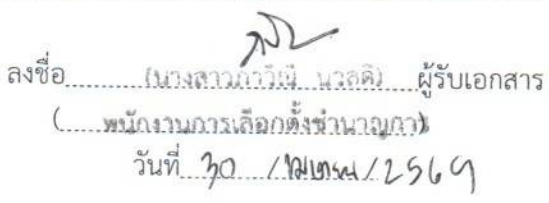 ลงชื่อ (นางสาวภาวิณี นวลดี) ผู้รับเอกสาร
( พนักงานการเลือกตั้งชำนาญการ )
วันที่ 30 / เมษายน / 2569